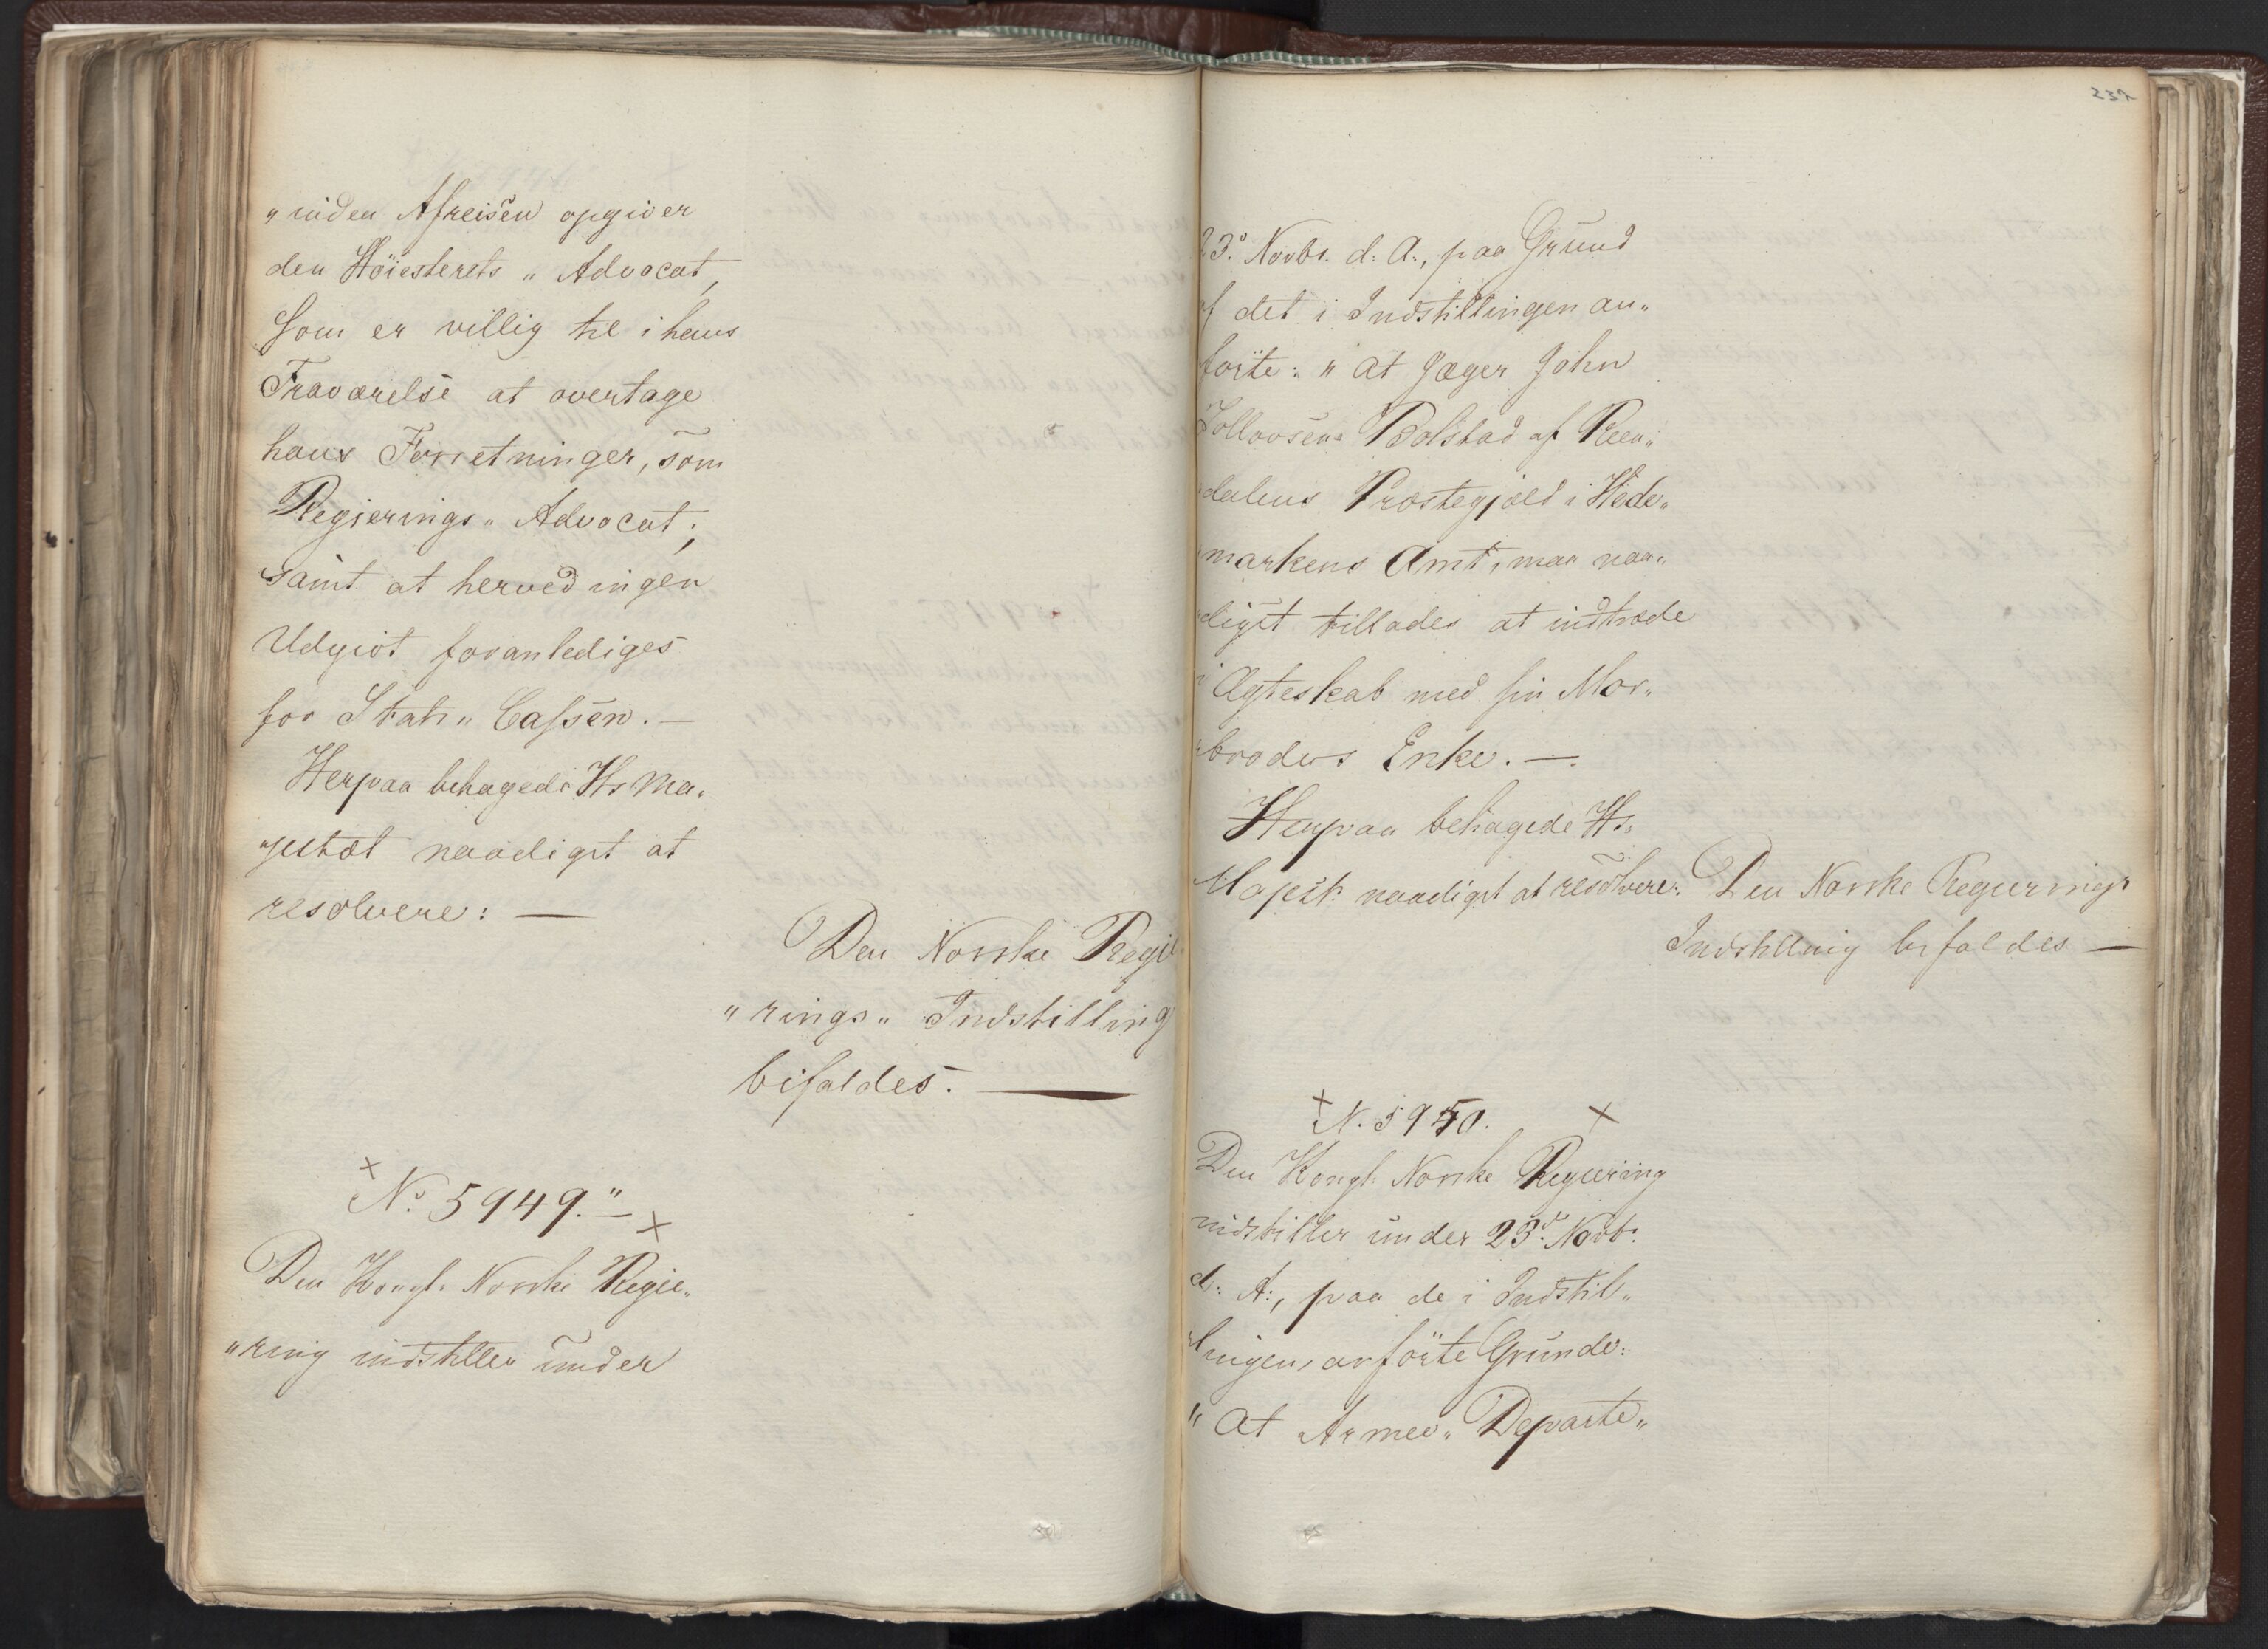 "inden Afreisen opgiver
den Höiesterets "Advocat,
som er villig til i hans
Fraværelse at overtage
hans Forretninger, som
Regjerings "Advocat;
samt at herved ingen
Udgivt foranlediges
for Stats "Cassen. —
Herpaa behagede Hs Ma„
jestæt naadigst at
resolvere: —
Den Norske Regie
"rings "Indstilling
bifaldes. —
No 5949."
Den Kongl. Norske Regie„
"ring indstiller under
232
23de Novbr. d: A:, paa Grund
af det i Indstillingen an„
förte: "at Jæger John
Bolstad af Reen„
dalens Præstegjæld i Hede„
markens Amt, maa naa„
digst tillades at indtræde
i Ægteskab med sin Mor„
broders Enke. —
Herpaa behagede Hs.
Majest. naadigst at resolvere: Den Norske Regierings
Indstilling bifaldes —
N. 5950.
Den Kongl. Norske Regiering
indstiller under 23de Novbr.
d: A:, paa de i Indstil„
lingen anförte Grunde:
"At Armee "Departe„